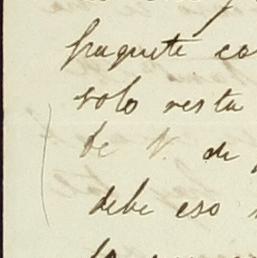 paquete co
solo resta
de V. de
debe eso